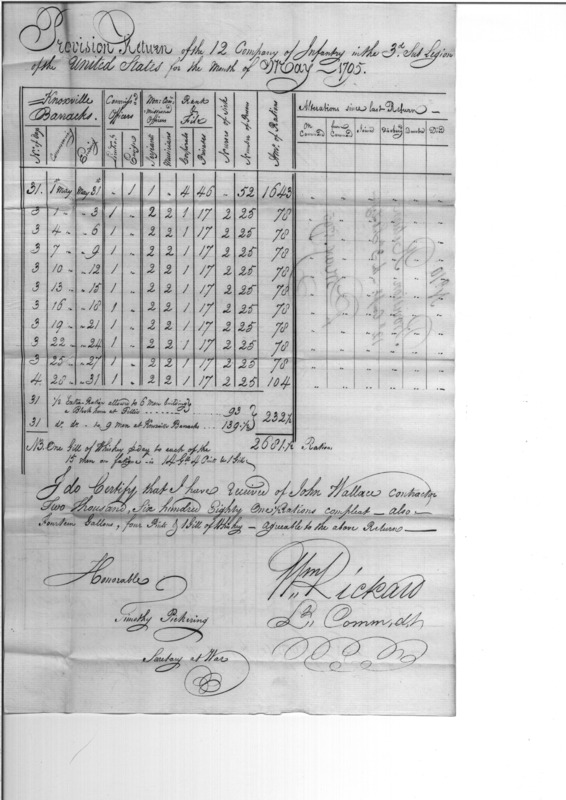 Provision Return of the 12 Company of Infantry in the 3d Sub Legion
of the United States for the Month of May 1795.
Knoxville Barracks. Commiss'd Officers Non Commissioned Officers Rank & File Alterations since last Return
No. of Days Commencing Ending Lieut.s Ensigns Sergeants Musicians Corporals Privates No. of Rations Joined Deserted Died
31. 1st May May 31st " 1 1 " 4 46 " 52 1643
3 1 " " 3 1 " 2 2 1 17 2 25 78
3 4 " " 6 1 " 2 2 1 17 2 25 78
3 7 " " 9 1 " 2 2 1 17 2 25 78
3 10 " " 12 1 " 2 2 1 17 2 25 78
3 13 " " 15 1 " 2 2 1 17 2 25 78
3 16 " " 18 1 " 2 2 1 17 2 25 78
3 19 " " 21 1 " 2 2 1 17 2 25 78
3 22 " " 24 1 " 2 2 1 17 2 25 78
3 25 " " 27 1 " 2 2 1 17 2 25 78
4 28 " " 31 1 " 2 2 1 17 2 25 104
31 1/2 Extra Ration allowed to 6 men building
a Block house at Tellico 93
31 do. do. to 9 men at Barracks 139.1/2 232 1/2
2681.1/2 Rations
NB. One Gill of Whiskey pr day to each of the
15 men on fatigue is 14 Gs 4 Pints & 1 Gill
I do Certify that I have received of John Wallace contractor
Two Thousand, Six hundred Eighty One Rations compleat — also —
Fourteen Gallons, four Pints & 1 Gill of Whisky — agreable to the above Return —
Honorable
Timothy Pickering
Secretary at War
Wm Rickard
Lt Comm.dt